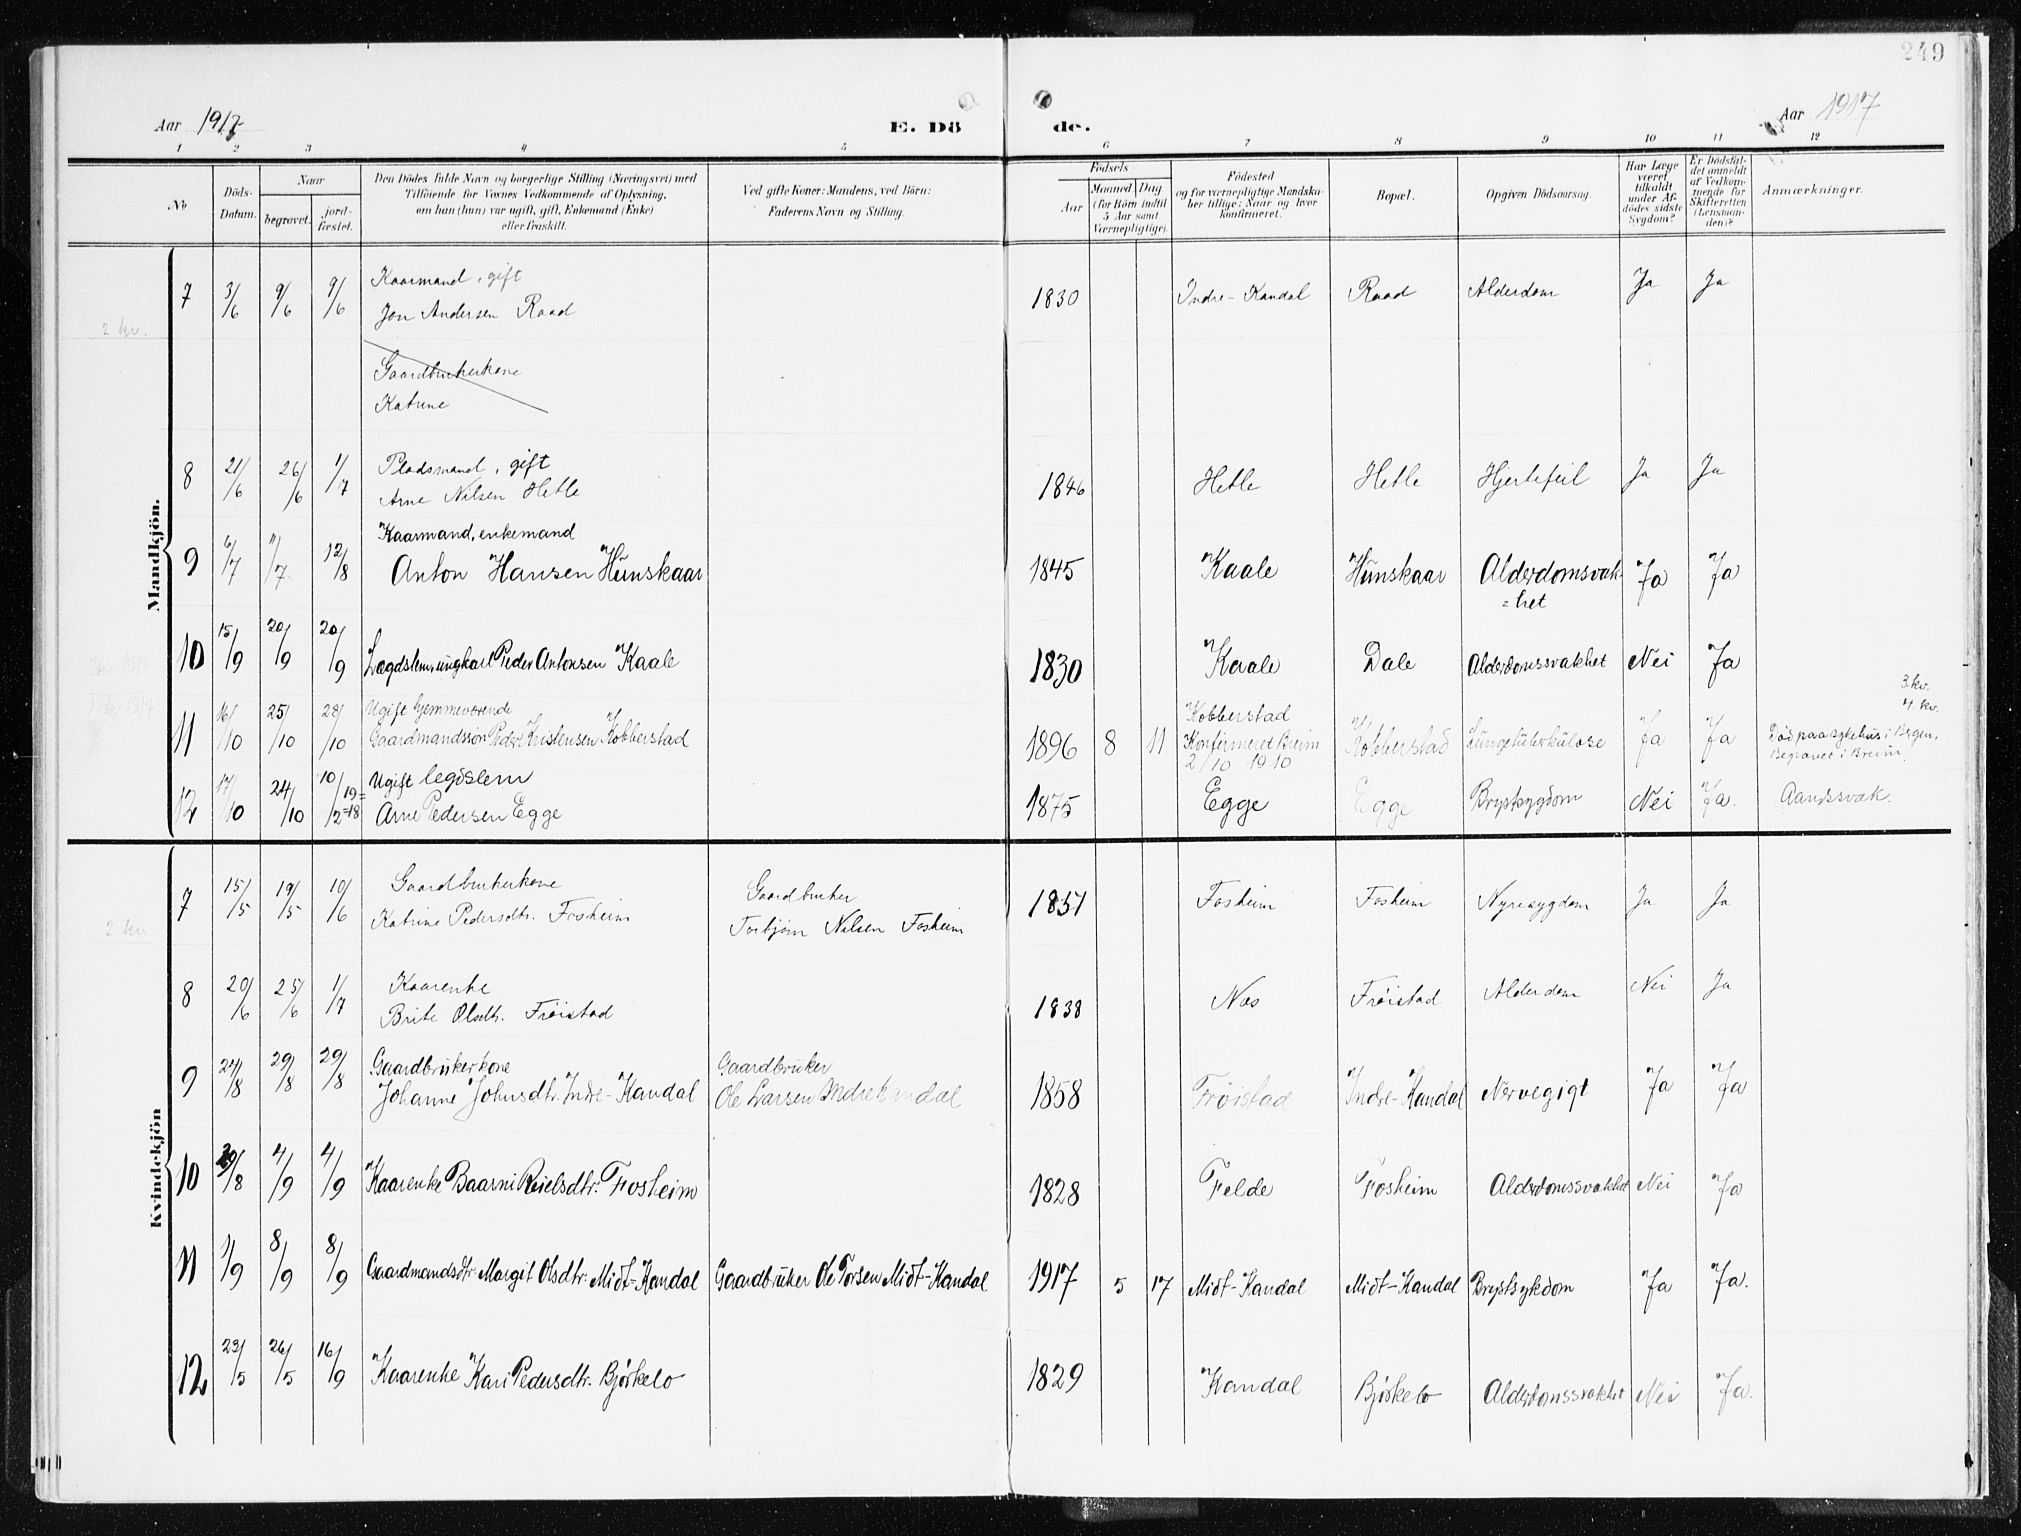 249
Aar 1917
E. Dö
de.
Aar 1917
1 2 3 4 5 6 7 8 9 10 11 12
No
Döds-Datum.
Naar
begravet.
jord-fæstet.
Den Dödes fulde Navn og borgerlige Stilling (Næringsvei) med
Tilföiende for Voxnes Vedkommende af Oplysning,
om han (hun) var ugift, gift, Enkemand (Enke)
eller fraskilt.
Ved gifte Koner: Mandens, ved Börn:
Faderens Navn og Stilling.
Födsels
Aar
Maaned Dag
(for Börn indtil
5 Aar samt
Værnepligtige).
Födested
og for værnepligtige Mandska-
ber tillige: Naar og hvor
konfirmeret.
Bopæl.
Opgiven Dödsaarsag.
Har Læge
været
tilkaldt
under Af-
dödes sidste
Sygdom?
Er Dödsfal-
det anmeldt
af Vedkom-
mende for
Skifteretten
(Lensman-
den)?
Anmærkninger.
Mandkjön.
2 kv.
7 3/6 9/6 9/6 Kaarmand, gift
Jon Andersen Raad 1830 Indre-Kandal Raad Alderdom Ja Ja
Gaardbrukerkone
Katrine
8 21/6 26/6 1/7 Pladsmand, gift
Arne Nilsen Hetle 1846 Hetle Hetle Hjertefeil Ja Ja
9 6/7 11/7 12/8 Kaarmand, enkemand
Anton Hansen Hunskaar 1845 Kaale Hunskaar Alderdomsvak=
=het Ja Ja
10 15/9 20/9 20/9 Lægdslem, ungkarl Peder Antonsen Kaale 1830 Kaale Dale Alderdomssvakhet Nei Ja
3. kv.
4. kv.
11 16/10 25/10 28/10 Ugift hjemmeværende
Gaardmandssøn Peder Kristensen Kobberstad 1896 8 11 Kobberstad
Konfirmeret Breim
2/10 1910 Kobberstad Lungetuberkulose Ja Ja Död paa sykehus i Bergen.
Begravet i Breim.
12 17/10 24/10 10/2 19=
=18 Ugift legdslem
Arne Pedersen Egge 1875 Egge Egge Brystsygdom Nei Ja. Aandssvak.
Kvindekjön
2 kv
7 15/5 19/5 10/6 Gaardbrukerkone
Katrine Pedersdtr. Fosheim Gaardbruker
Torbjørn Nilsen Fosheim 1851 Fosheim Fosheim Nyresygdom Ja Ja
8 20/6 25/6 1/7 Kaarenke
Brite Olsdtr. Frøistad 1838 Nos Frøistad Alderdom Nei Ja
9 24/8 29/8 29/8 Gaardbrukerkone
Johanne Johnsdtr. Indre-Kandal Gaardbruker
Ole Larsen Indre Kandal 1858 Frøistad Indre-Kandal Nervegigt Ja Ja
10 4/9 4/9 Kaarenke Baarni Reielsdtr. Fosheim 1828 Felde Fosheim Alderdomssvakhet Nei Ja
11 1/9 8/9 8/9 Gaardmandsdtr. Margit Olsdtr. Midt-Kandal Gaardbruker Ole Torsen Midt-Kandal 1917 5 17 Midt-Kandal Midt-Kandal Brystsykdom Ja Ja.
12 23/5 26/5 16/9 Kaarenke Kari Pedersdtr. Bjørkelo 1829 Kandal Bjørkelo Alderdomssvakhet Nei Ja.